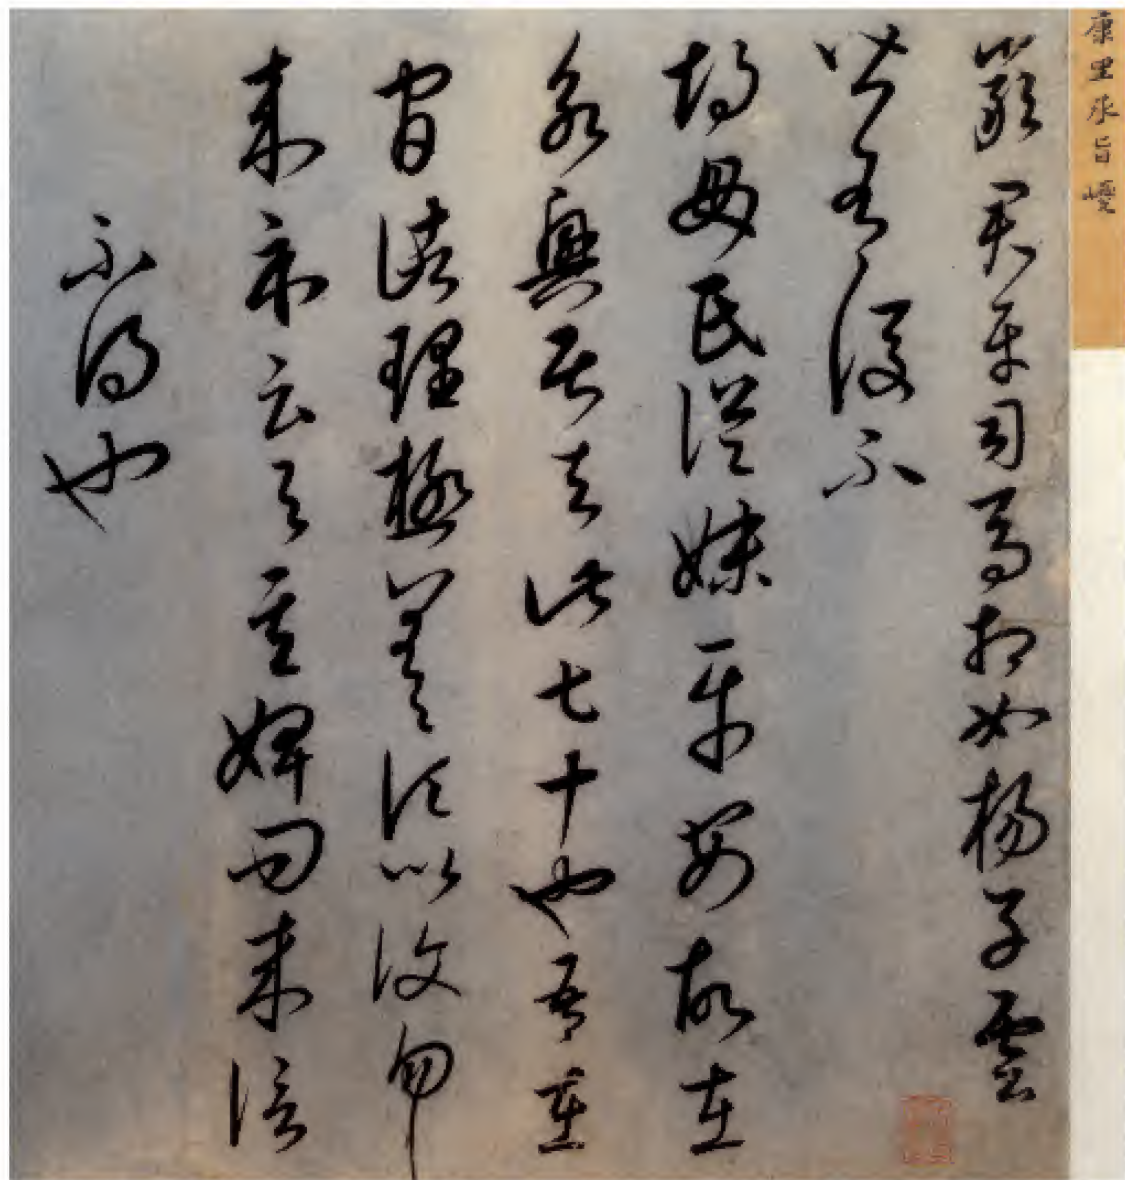 康里承旨巙
嚴君平司馬相如楊子雲
皆有後不
胡毋氏從妹平安故在
永興居去此七十也吾在
官諸理極差頃比復勿
來示云與其婢問來信
不得也